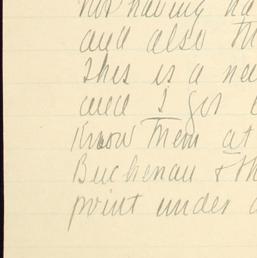 not having ha
and also th
This is a ne
and I got
Know them at
Buchenau & th
point under a